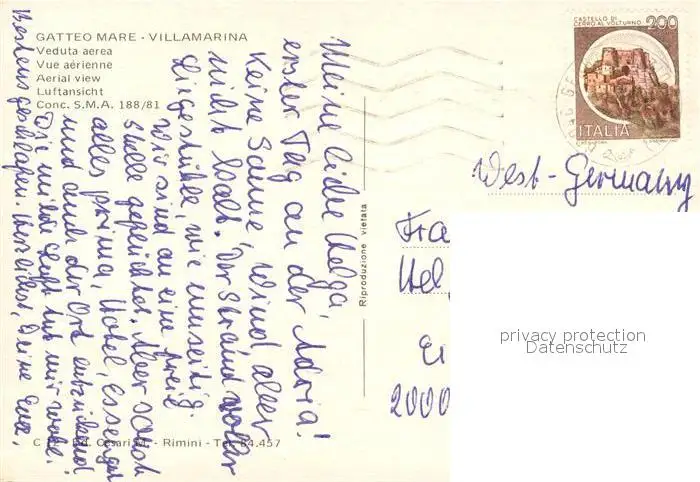 GATTEO MARE - VILLAMARINA
Veduta aerea
Vue aérienne
Aerial view
Luftansicht
Conc. S.M.A. 188/81
Meine liebe Helga,
erster Tag an der Adria!
Keine Sonne, Wind aber
nicht kalt. Der Strand voller
Liegestühle, wie umseitig.
Wir sind an eine freie
Stelle geflüchtet. Aber sonst
alles prima, Hotel, Essen gut
und auch der Ort entzückend
Die milde Luft tut mir wohl.
Bestens geschlafen. Herzlichst, Deine Eva.
C 12 - Ed. Cesari M. - Rimini - Tel. 84.457
Riproduzione vietata
CASTELLO DI
CERRO AL VOLTURNO
200
ITALIA
West-Germany
Fra
Hel
2000
privacy protection
Datenschutz